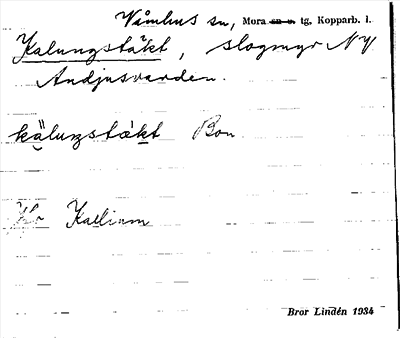 Våmhus sn, Mora sn o. tg, Kopparb. l.
Kalungstäkt, slogmyr NV
Andjusvarden.
kälungstäkt Bon
Karlium
Bror Lindén 1934